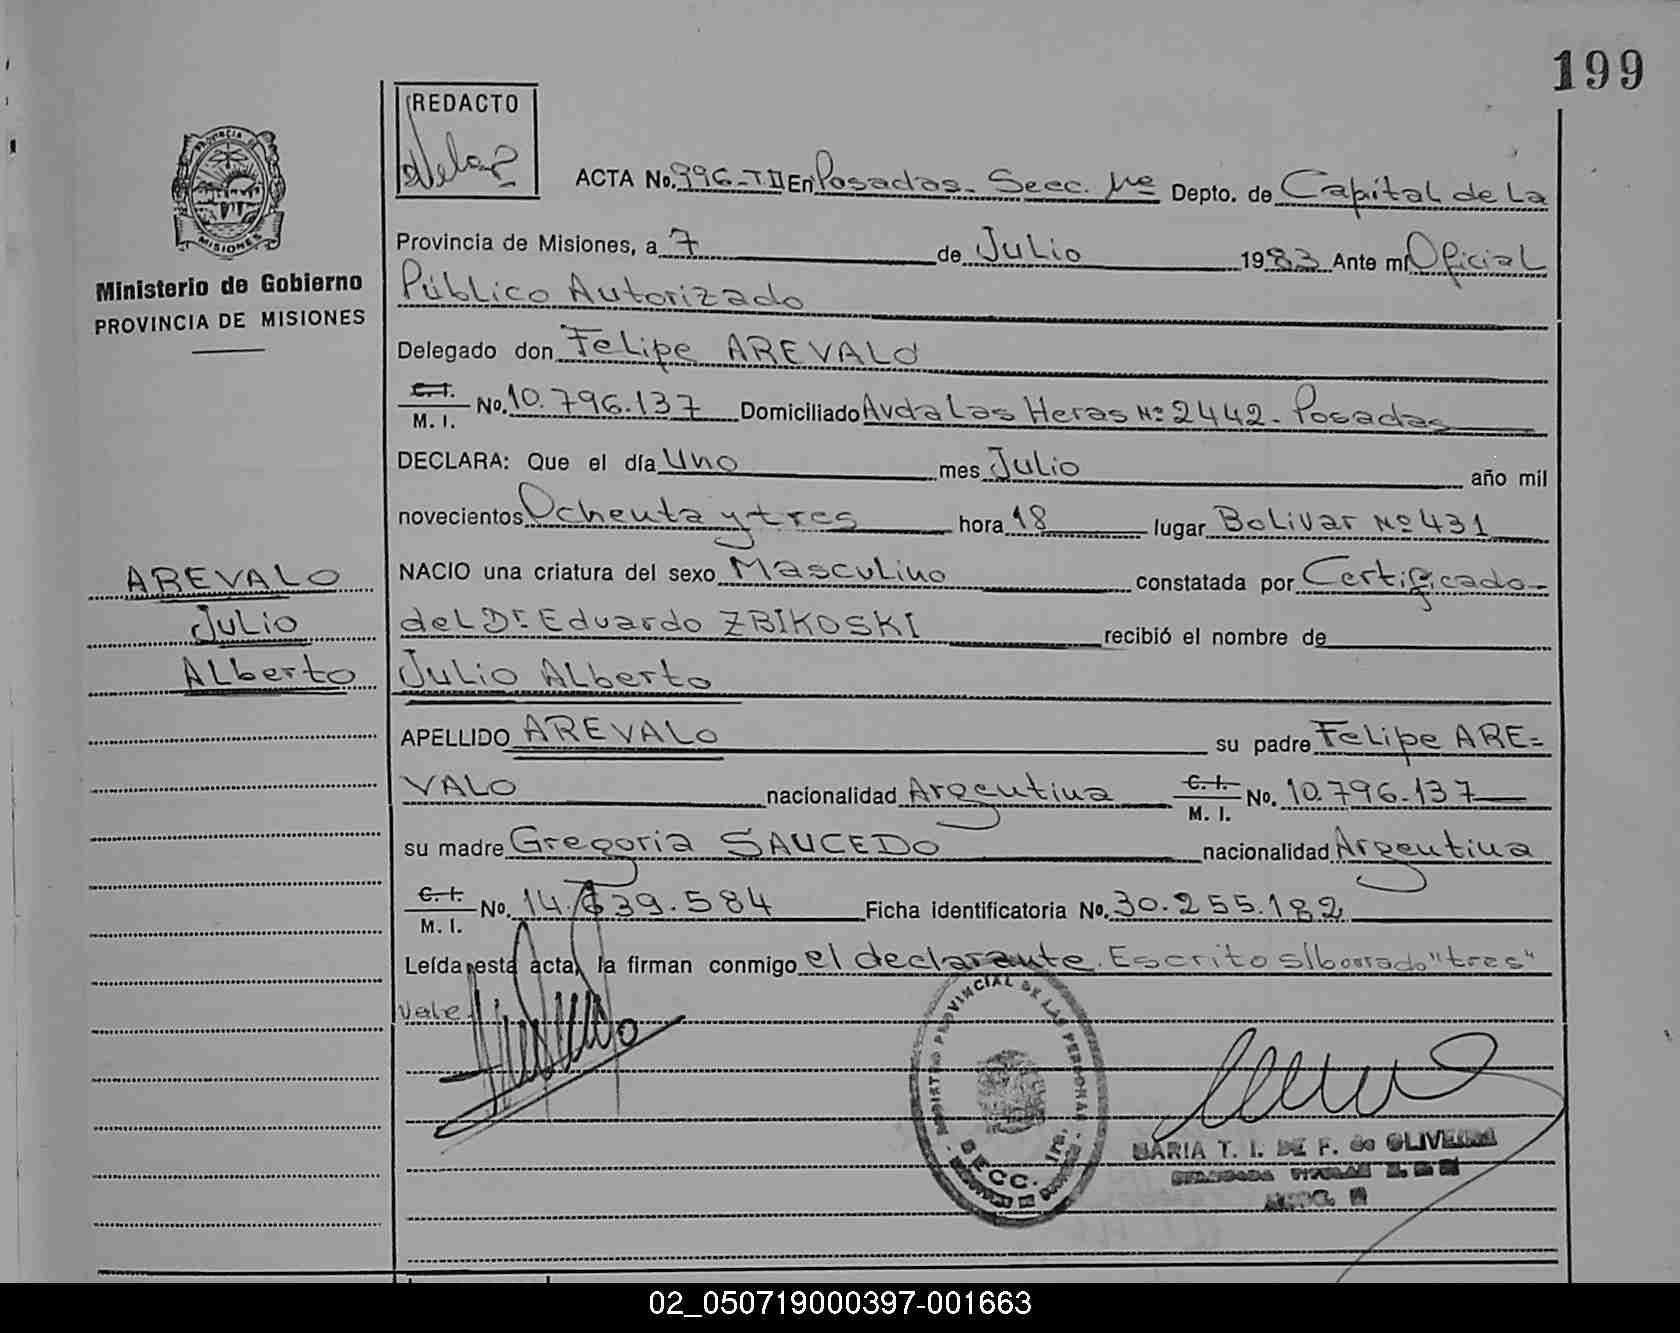 199
REDACTO
PROVINCIA DE
MISIONES
ACTA No. 996-TII En Posadas- Secc. 1ra Depto. de Capital de la
Provincia de Misiones, a 7 de Julio 1983 Ante mí Oficial
Ministerio de Gobierno
Público Autorizado
PROVINCIA DE MISIONES
Delegado don Felipe AREVALO
C.I. M. I. No. 10.796.137 Domiciliado Avda Las Heras Nº 2442- Posadas
DECLARA: Que el día Uno mes Julio año mil
novecientos Ochenta y tres hora 18 lugar Bolivar Nº 431
AREVALO
NACIO una criatura del sexo Masculino constatada por Certificado-
Julio
del Dr. Eduardo ZBIKOSKI recibió el nombre de
Alberto
Julio Alberto
APELLIDO AREVALO su padre Felipe ARE=
VALO nacionalidad Argentina C.I. M. I. No. 10.796.137
su madre Gregoria SAUCEDO nacionalidad Argentina
C.I. M. I. No. 14.639.584 Ficha identificatoria No. 30.255.182
Leída esta acta, la firman conmigo el declarante. Escrito s/borrado "tres"
Vale.
REGISTRO PROVINCIAL DE LAS PERSONAS
SECC. 1ra.
MARIA T. I. DE F. de OLIVEIRA
02_050719000397-001663